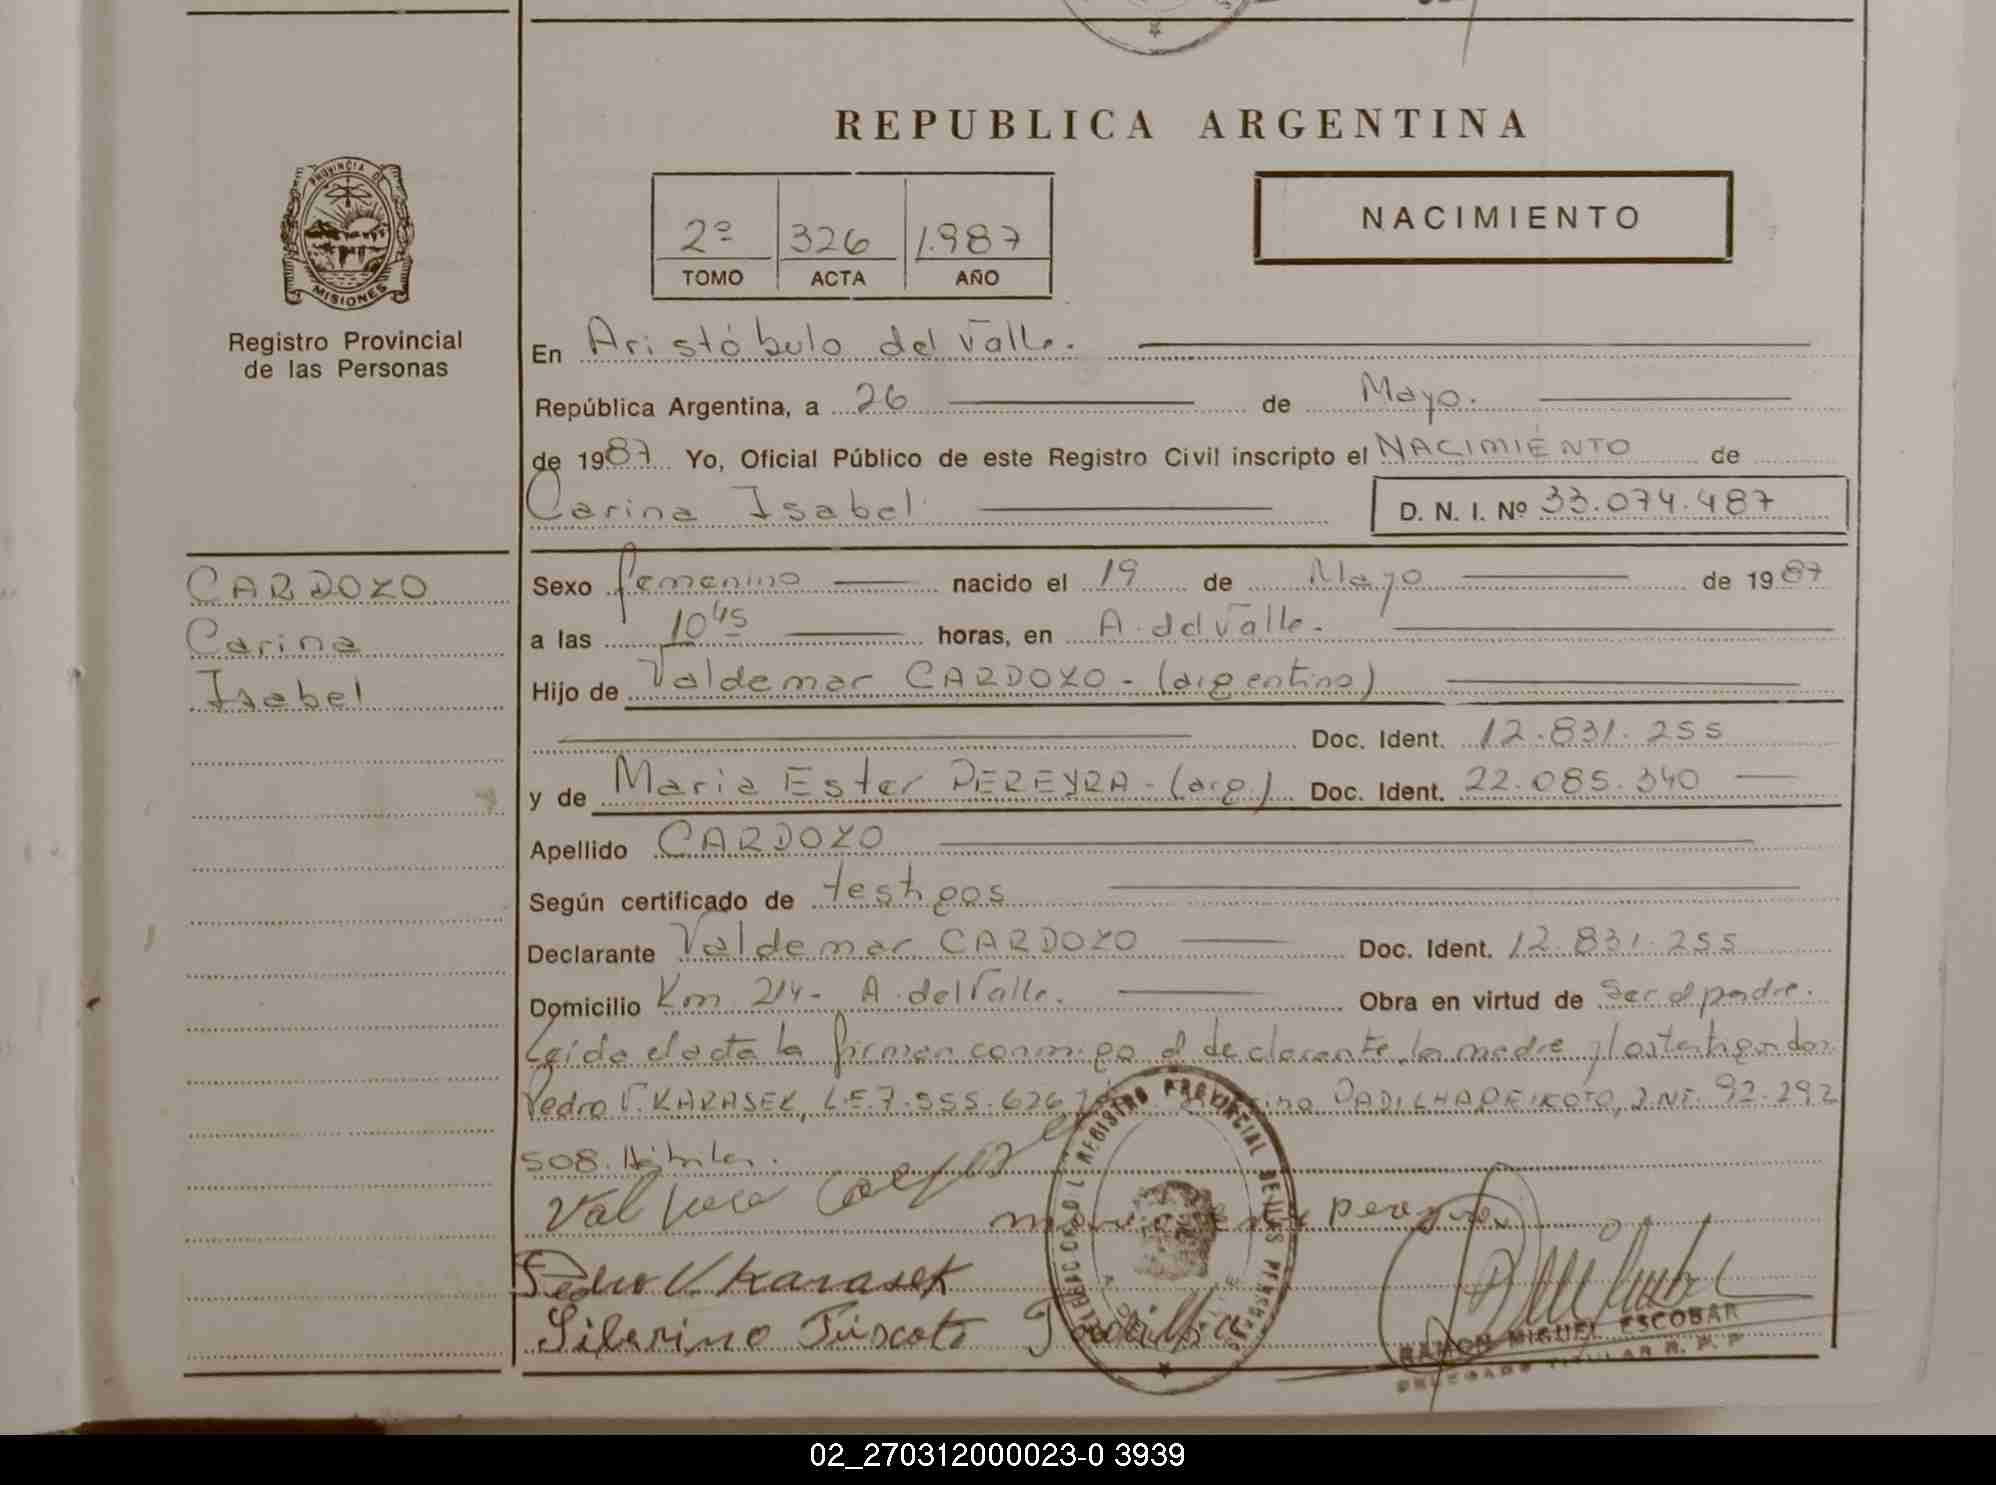 REPUBLICA ARGENTINA
PROVINCIA DE
MISIONES
Registro Provincial
de las Personas
2º 326 1.987
TOMO ACTA AÑO
NACIMIENTO
En Aristóbulo del Valle.
República Argentina, a 26 de Mayo.
de 1987 Yo, Oficial Público de este Registro Civil inscripto el NACIMIENTO de
Carina Isabel D. N. I. Nº 33.074.487
CARDOZO
Carina
Isabel
Sexo femenino nacido el 19 de Mayo de 1987
a las 10 45 horas, en A. del Valle.
Hijo de Valdemar CARDOZO - (argentino)
Doc. Ident. 12.831.255
y de Maria Ester PEREYRA - (arg.) Doc. Ident. 22.085.340
Apellido CARDOZO
Según certificado de testigos
Declarante Valdemar CARDOZO Doc. Ident. 12.831.255
Domicilio Km. 214- A. del Valle. Obra en virtud de ser el padre.
Leída el acta la firman conmigo el declarante, la madre y los testigos don
Pedro V. KARASEK, L.E. 7.555.626 92.292
508. Hábiles.
REGISTRO PROVINCIAL DE LAS PERSONAS
Pedro V. Karasek
RAMON MIGUEL ESCOBAR
DELEGADO TITULAR R. P. P.
02_270312000023-0 3939